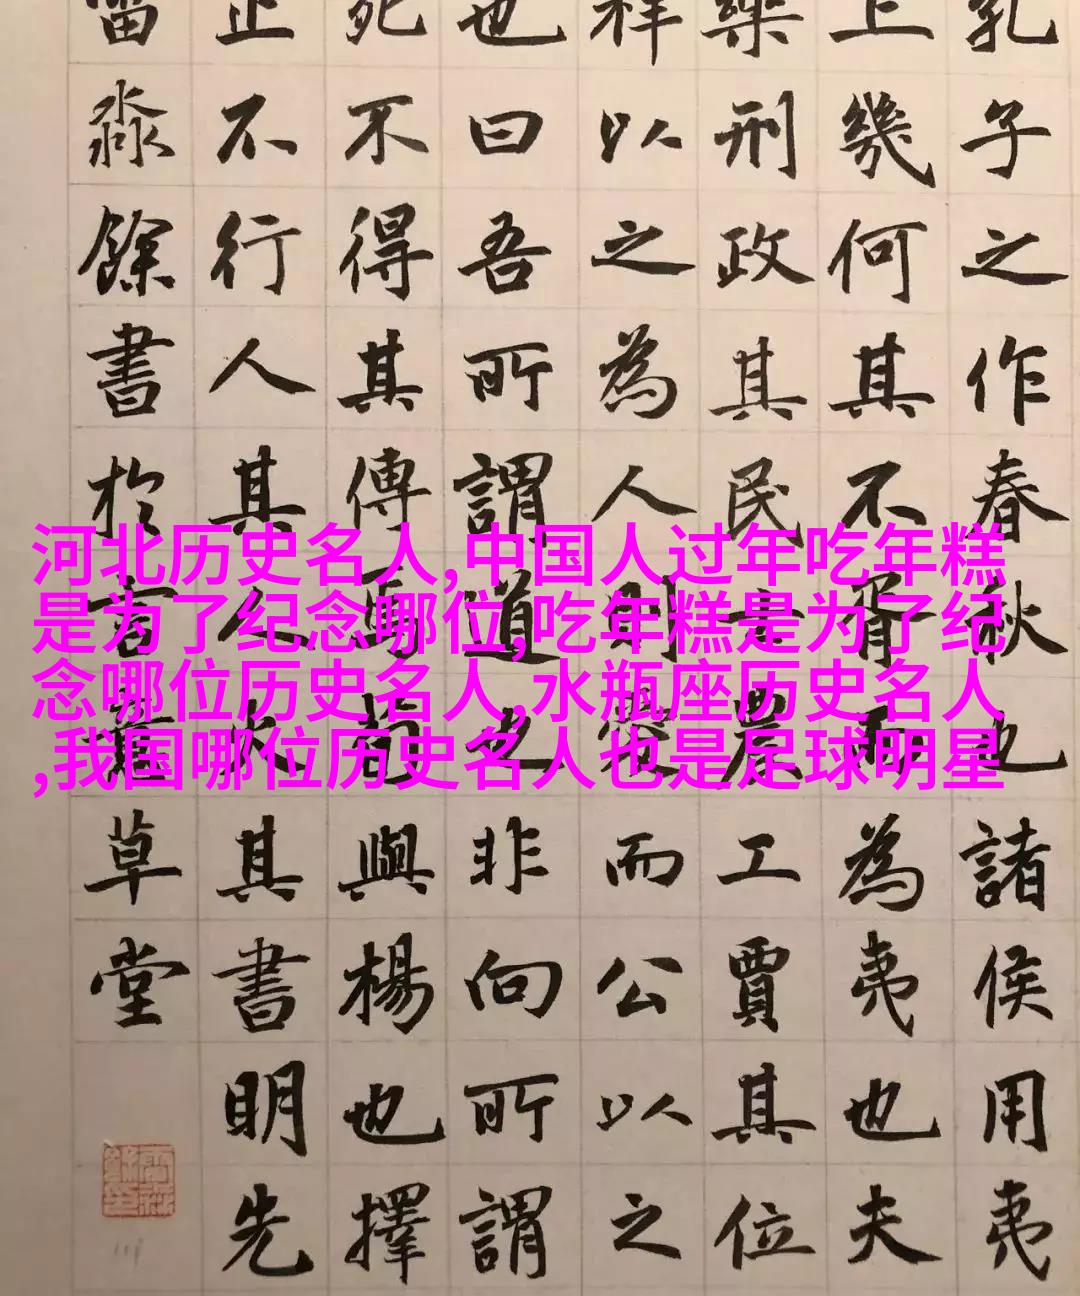 孔子之作春秋也諸侯用夷
上幾何其不胥而為夷也夫
樂刑政其民士農工賈其位
祥以之為人則愛而公以之
也曰吾所謂道也非向所謂
死不得其傳焉荀與楊也擇
止不行人其人火其書明先
淼餘書於草堂
河北历史名人,中国人过年吃年糕
是为了纪念哪位,吃年糕是为了纪
念哪位历史名人,水瓶座历史名人
,我国哪位历史名人也是足球明星